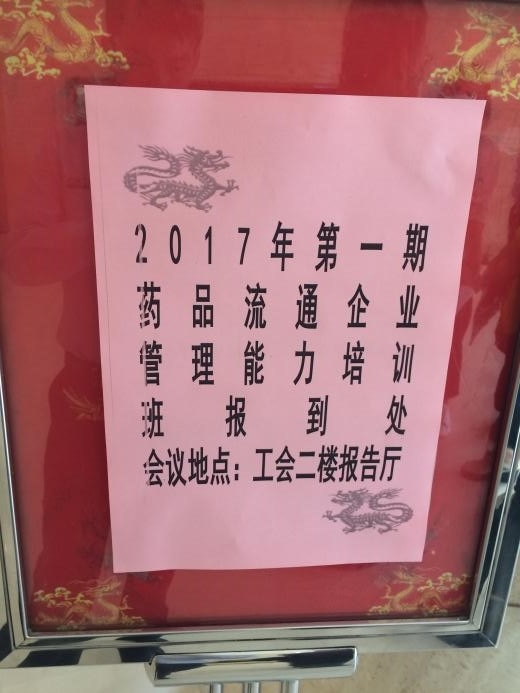 2017年第一期
药品流通企业
管理能力培训
班报到处
会议地点：工会二楼报告厅